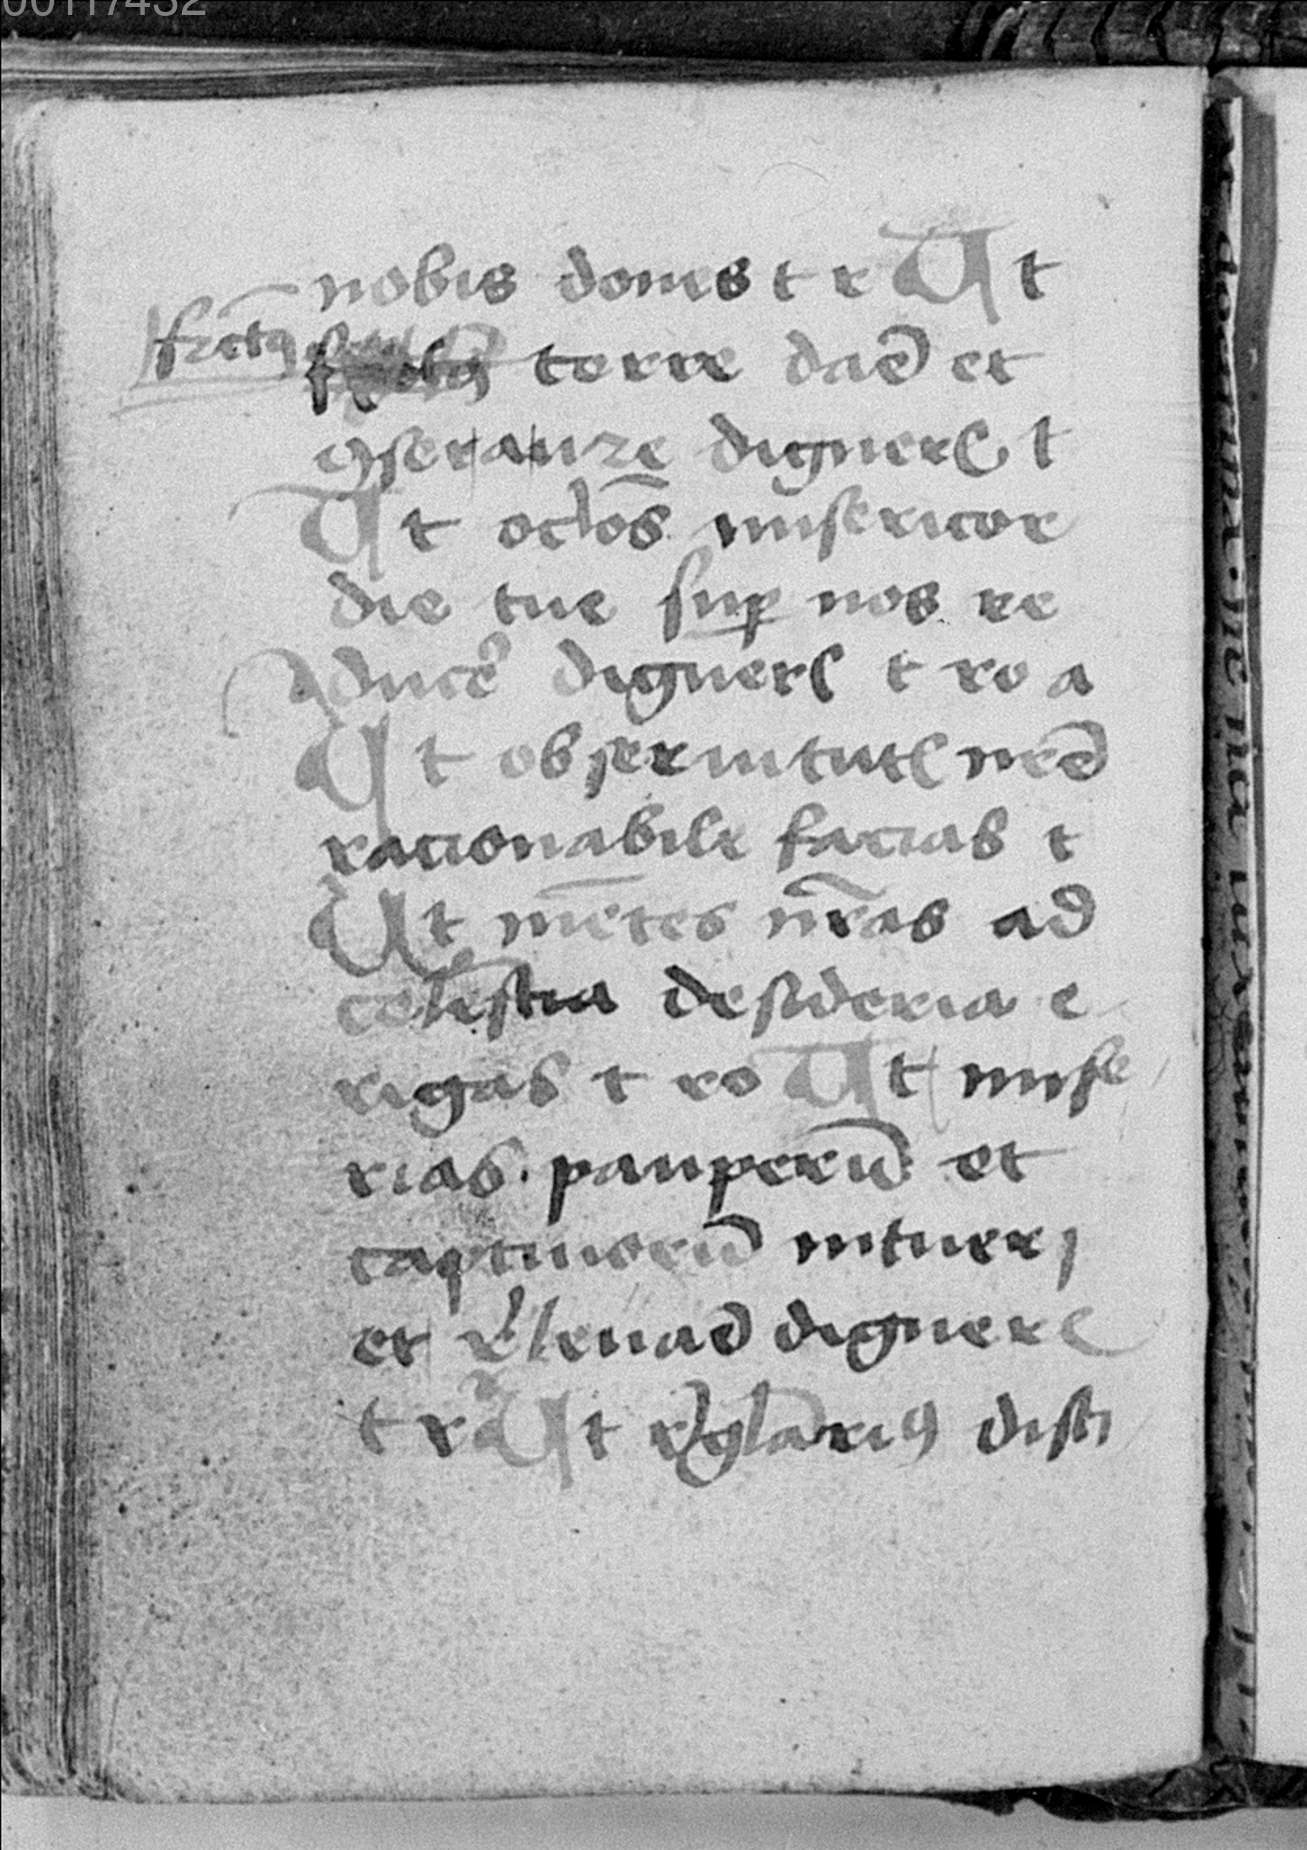 00117432
nobis dones t r Ut
frct9 terre daē et
9seruare digner̄ t
Ut oclōs misericor
die tue sup nos re
ducē digner̄ t ro a
Ut obseruitut̄ nrē
racionabile facias t
Ut mētes nr̄as ad
celestia desideria e
rigas t ro Ut mise
rias pauperū et
captiuorū intueri
et releuad digner̄
t ra Ut reglarig disci